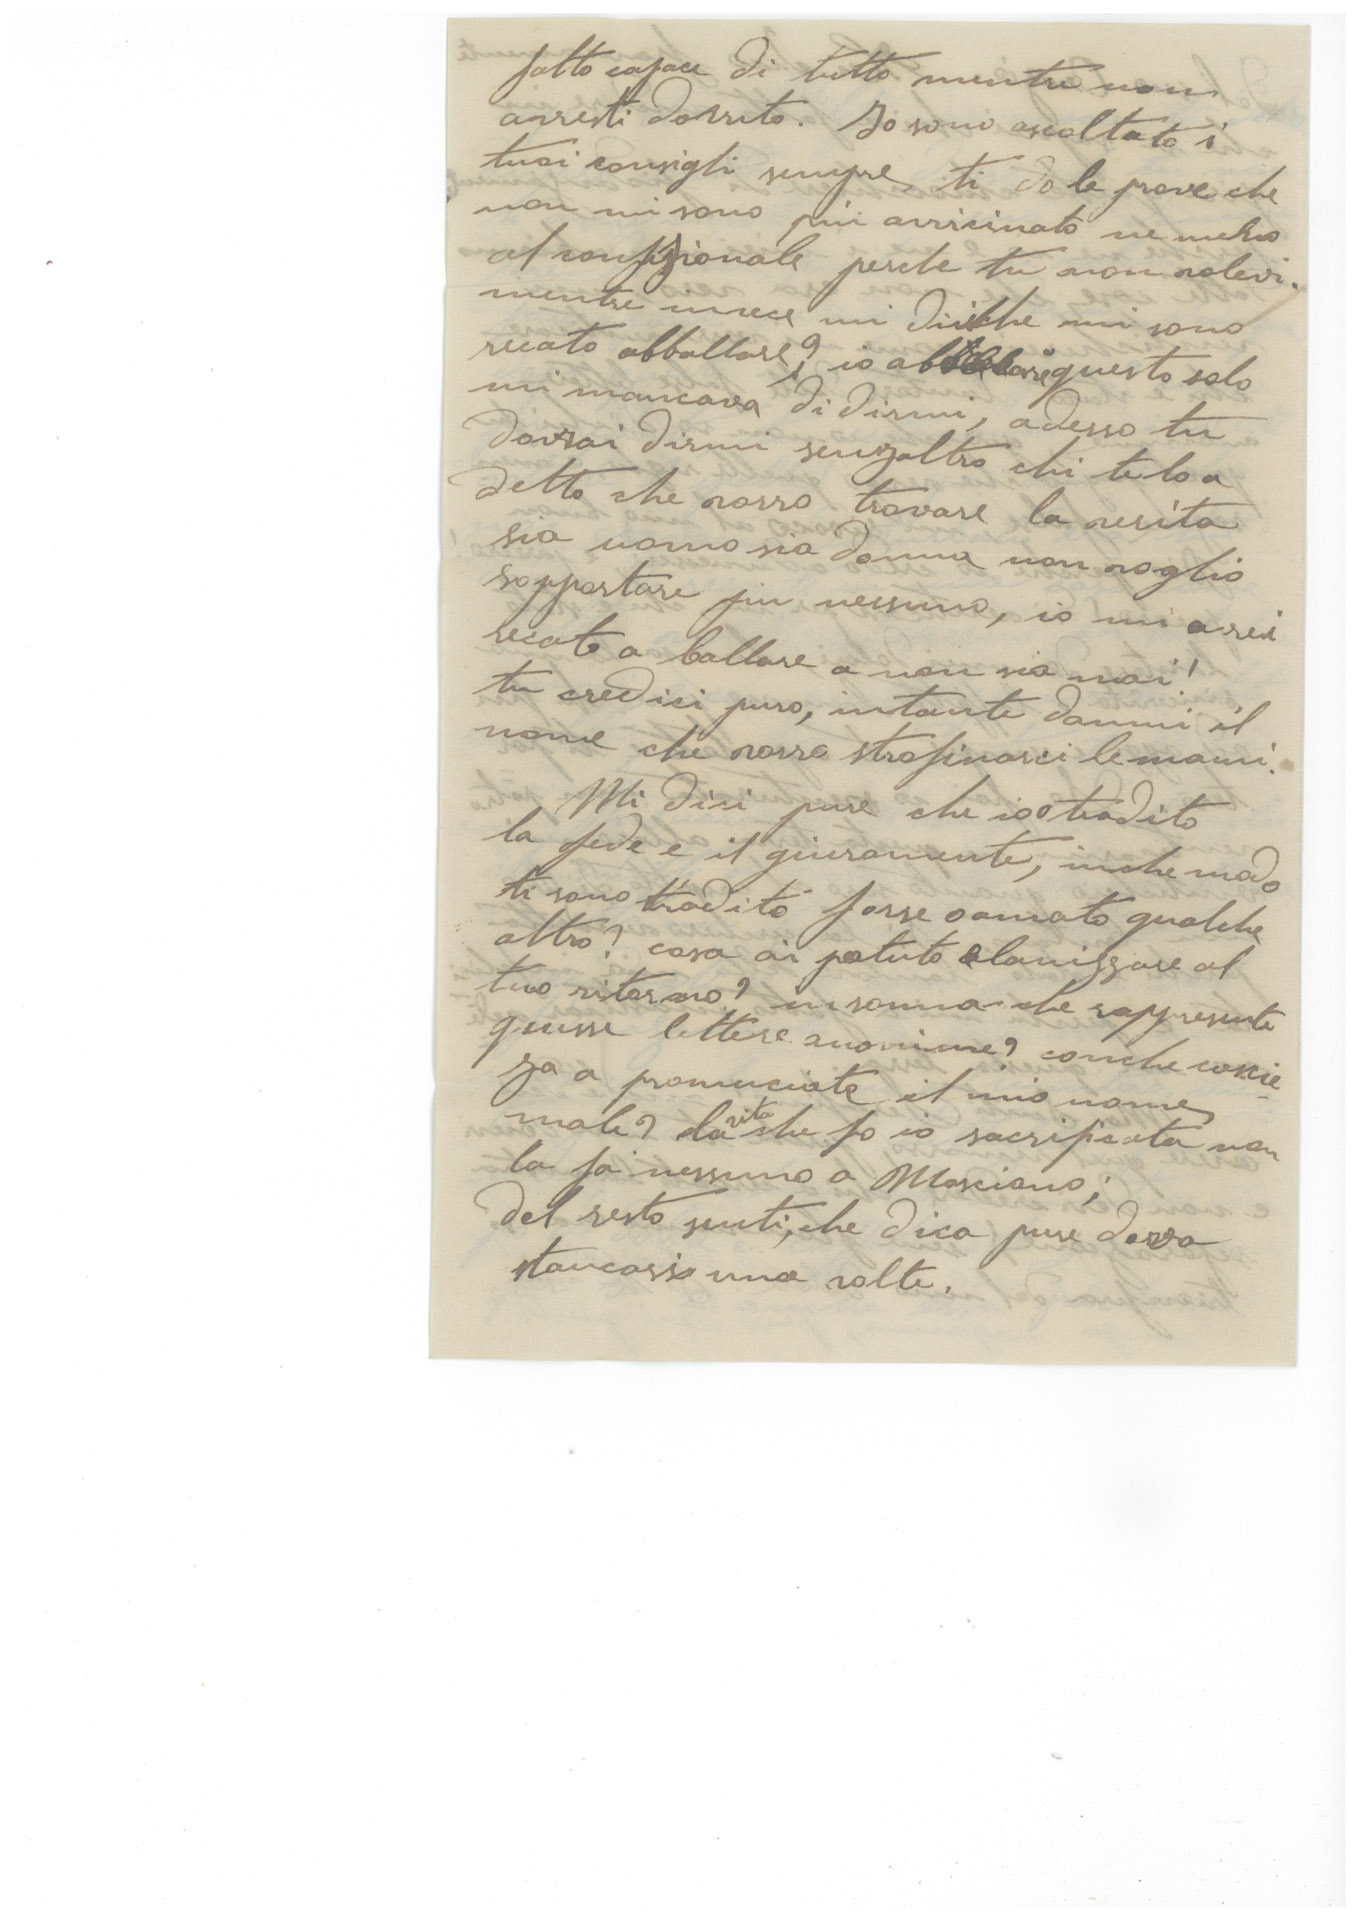 fatto capace di tutto mentre non
avresti dovuto. Io sono ascoltato i
tuoi consigli sempre, ti do le prove che
non mi sono più avvicinato ne meno
al confessionale perche tu non volevi.
mentre invece mi dici che mi sono
recato abballare? io abballare questo solo
mi mancava di dirmi, adesso tu
dovrai dirmi senzaltro chi te lo a
detto che vorro trovare la verita
sia uomo sia donna non voglio
sopportare piu nessuno, io mi arei
recato a ballare a non sia mai!
tu credici puro, intante dammi il
nome che vorro strofinarci le mani.
Mi dici pure che io o tradito
la fede e il giuramente, in che modo
ti sono tradito forse o amato qualche
altro? cosa ai potuto
tuo ritorno? in somma che rappresente
queste lettere anonime? con che coscie
za a pronunciate il mio nome
male? la vita che fo io sacrificata non
la fa nessuno a Mosciano;
del resto senti, che dica pure dovra
stancarsi una volte.